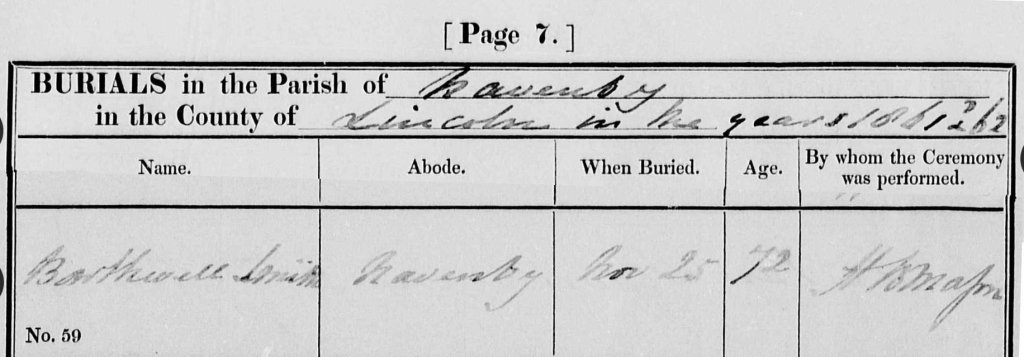 [ Page 7. ]
BURIALS in the Parish of Navenby
in the County of Lincoln in the years 1861 & 62
Name. Abode. When Buried. Age. By whom the Ceremony was performed.
Smith Navenby Nov 25 72 Mason
No. 59